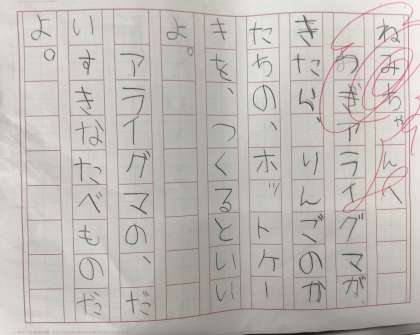 ねみちゃんへ
うぎアライグマが、
きたら、りんごのか
たちの、ホットケー
キを、つくるといい
よ。
アライグマの、だ
いすきなたべものだ
よ。